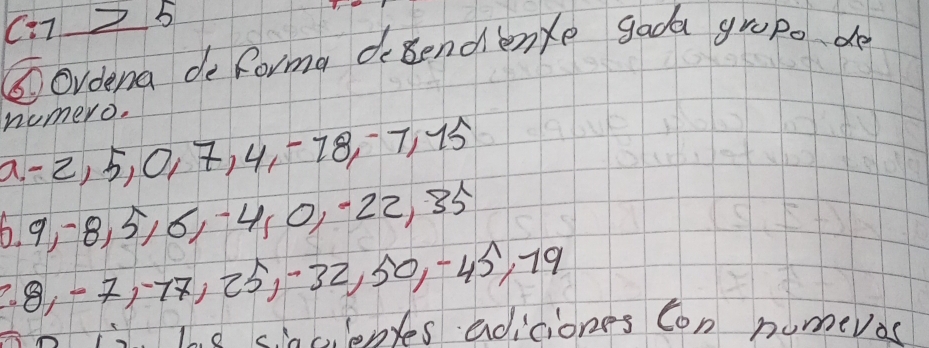 C:1 > 5
6) Ordena de forma desendiente gada grupo de
numero.
a. -2, 5, 0, 7, 4, -18, -7, 15
b. 9, -8, 5, 6, -4, 0, -22, 35
8, -7, -17, 25, -32, 50, -45, 19
las siguientes adiciones con numeros